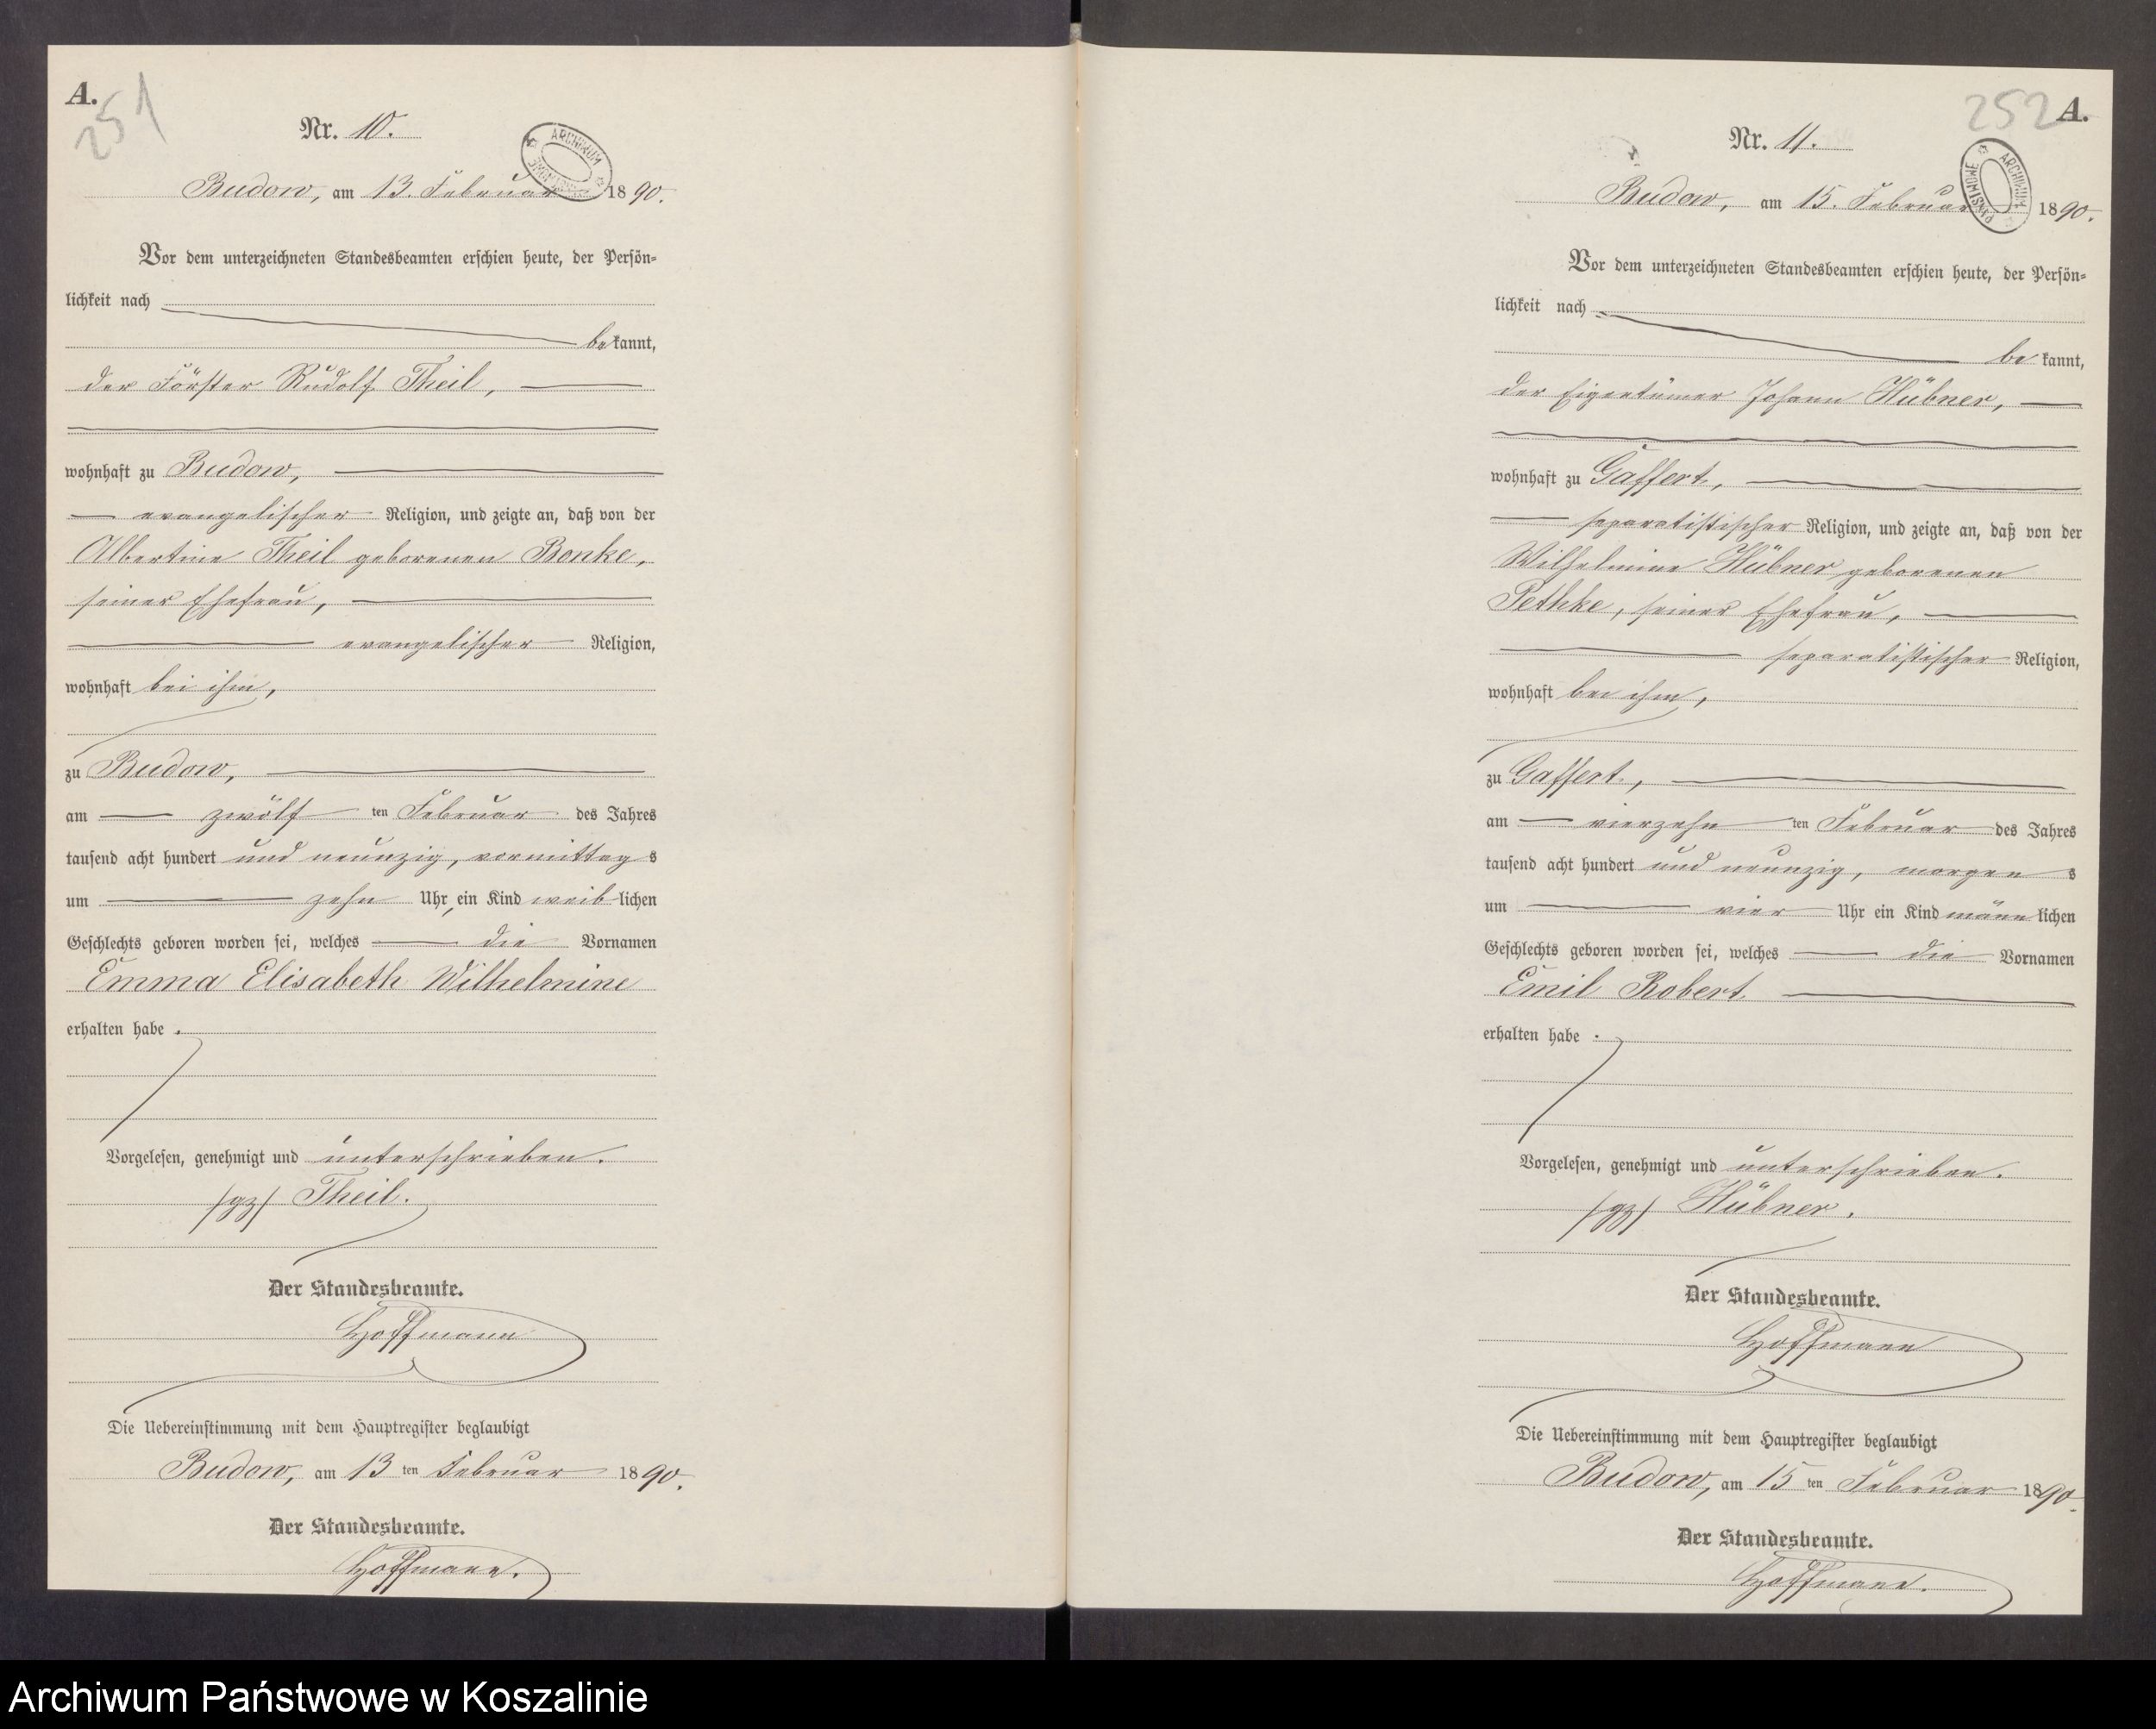 A.
251
Nr. 10.
ARCHIWUM
Budow, am 13. Februar 1890.
Vor dem unterzeichneten Standesbeamten erschien heute, der Persön-
lichkeit nach
bekannt,
der Förster Rudolf Theil,
wohnhaft zu Budow,
evangelischer Religion, und zeigte an, daß von der
Albertine Theil geborenen Bonke,
seiner Ehefrau,
evangelischer Religion,
wohnhaft bei ihm,
zu Budow,
am zwölf ten Februar des Jahres
tausend acht hundert und neunzig, vormittags
um zehn Uhr, ein Kind weiblichen
Geschlechts geboren worden sei, welches die Vornamen
Emma Elisabeth Wilhelmine
erhalten habe.
Vorgelesen, genehmigt und unterschrieben.
/gz/ Theil.
Der Standesbeamte.
Hoffmann
Die Uebereinstimmung mit dem Hauptregister beglaubigt
Budow, am 13 ten Februar 1890.
Der Standesbeamte.
Hoffmann.
252
A.
Nr. 11.
ARCHIWUM PAŃSTWOWE
Budow, am 15. Februar 1890.
Vor dem unterzeichneten Standesbeamten erschien heute, der Persön-
lichkeit nach
bekannt,
der Eigentümer Johann Hübner,
wohnhaft zu Gaffert,
separatistischer Religion, und zeigte an, daß von der
Wilhelmine Hübner geborenen
Pethke, seiner Ehefrau,
separatistischer Religion,
wohnhaft bei ihm,
zu Gaffert,
am vierzehn ten Februar des Jahres
tausend acht hundert und neunzig, morgens
um vier Uhr ein Kind männlichen
Geschlechts geboren worden sei, welches die Vornamen
Emil Robert
erhalten habe.
Vorgelesen, genehmigt und unterschrieben.
/gz/ Hübner.
Der Standesbeamte.
Hoffmann
Die Uebereinstimmung mit dem Hauptregister beglaubigt
Budow, am 15 ten Februar 1890.
Der Standesbeamte.
Hoffmann.
Archiwum Państwowe w Koszalinie